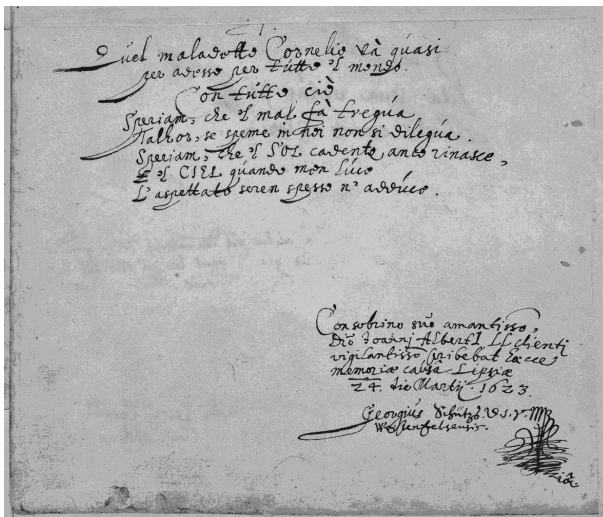 Quel maladetto Cornelio và quasi
per adesso per tutto 'l mondo.
Con tutto ciò
Speriam, che 'l mal fà tregua
Talhor, se speme in noi non si dilegua.
Speriam, che 'l SOL cadente anco rinasce,
E 'l CIEL quando men luce
L'aspettato seren spesso n' adduce.
Consobrino suo amantisso,
Dnō Joannj AlbertI LL clienti
vigilantisso scribebat haecce
memoriae causâ Lipsiae
24. die Martij. 1623.
Georgius Schütz
Weissenfelsensis.